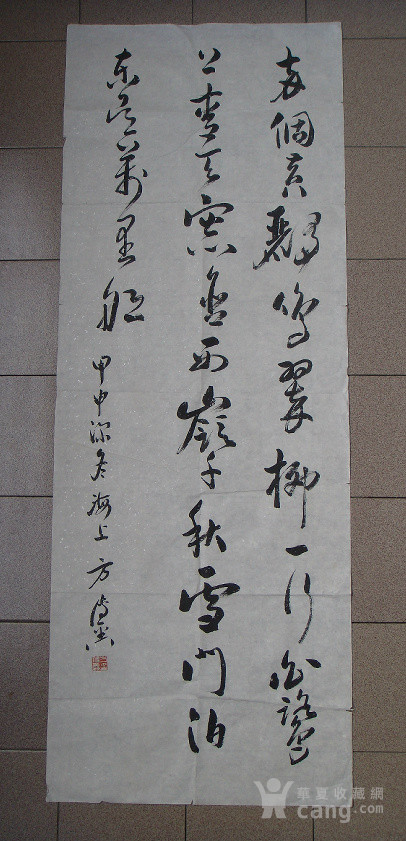 两個黄鸝鳴翠柳一行白鷺
上青天窗含西嶺千秋雪門泊
东吴萬里船
甲申深冬海上方传鑫
華夏收藏網
cang.com